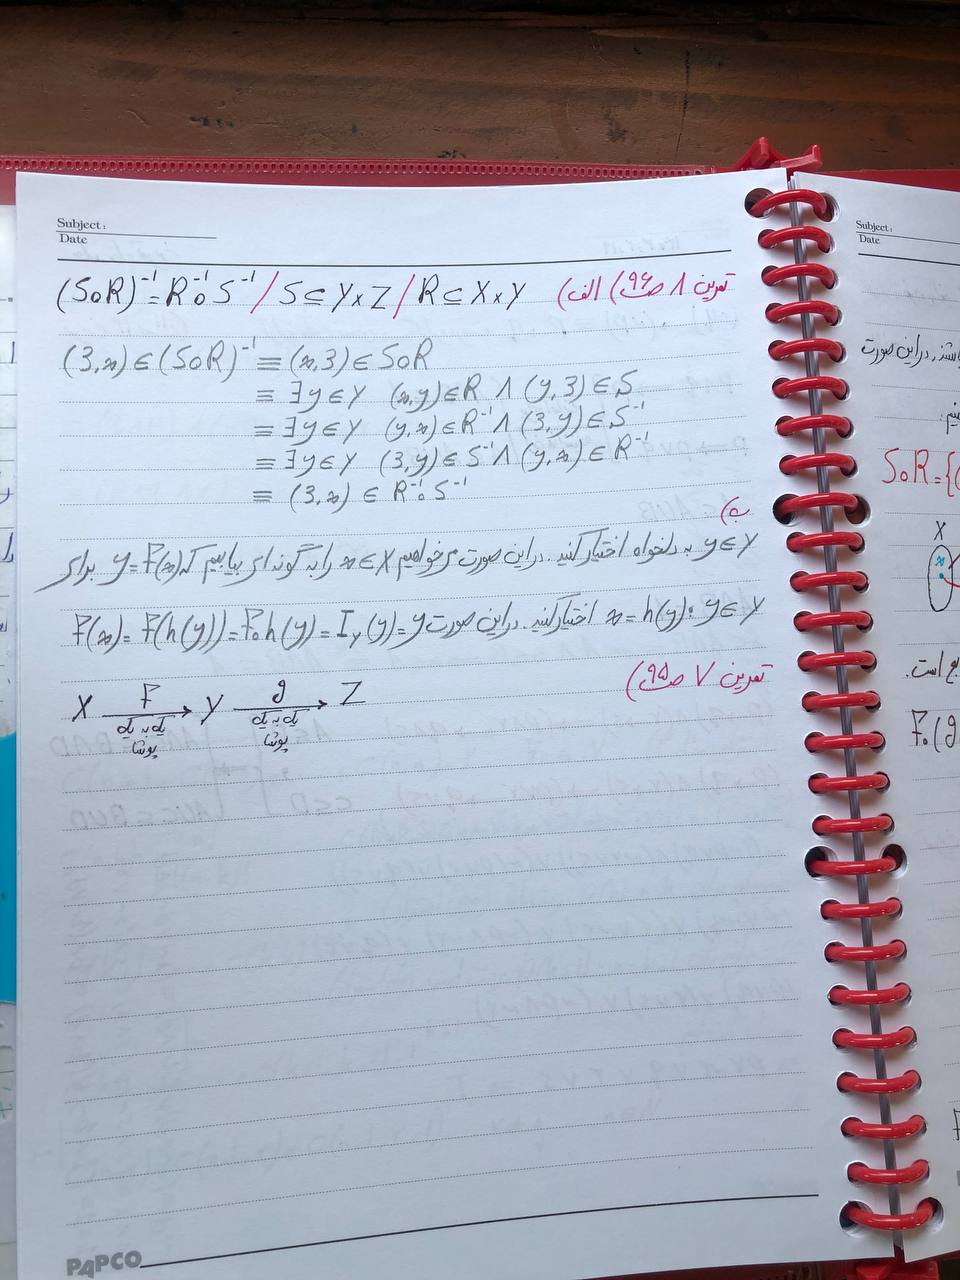 Subject:
Date
تمرین ۸ ص ۹۶) الف) (SoR)⁻¹ = R⁻¹oS⁻¹ / S ⊆ Y×Z / R ⊆ X×Y
(3,x) ∈ (SoR)⁻¹ ≡ (x,3) ∈ SoR
≡ ∃y∈Y (x,y)∈R ∧ (y,3)∈S
≡ ∃y∈Y (y,x)∈R⁻¹ ∧ (3,y)∈S⁻¹
≡ ∃y∈Y (3,y)∈S⁻¹ ∧ (y,x)∈R⁻¹
≡ (3,x) ∈ R⁻¹oS⁻¹
ب)
y∈Y به دلخواه اختیار کنید. در این صورت می‌خواهیم x∈X را به گونه‌ای بیابیم که y=f(x) برای
y∈Y؛ x=h(y) اختیار کنید. در این صورت f(x)=f(h(y))=foh(y)=I_Y(y)=y
تمرین ۷ ص ۹۵)
X f→ Y g→ Z
یک به یک یک به یک
پوشا پوشا
PAPCO
Subject:
Date
در این صورت
SoR={(
X
x
است.
fo(g